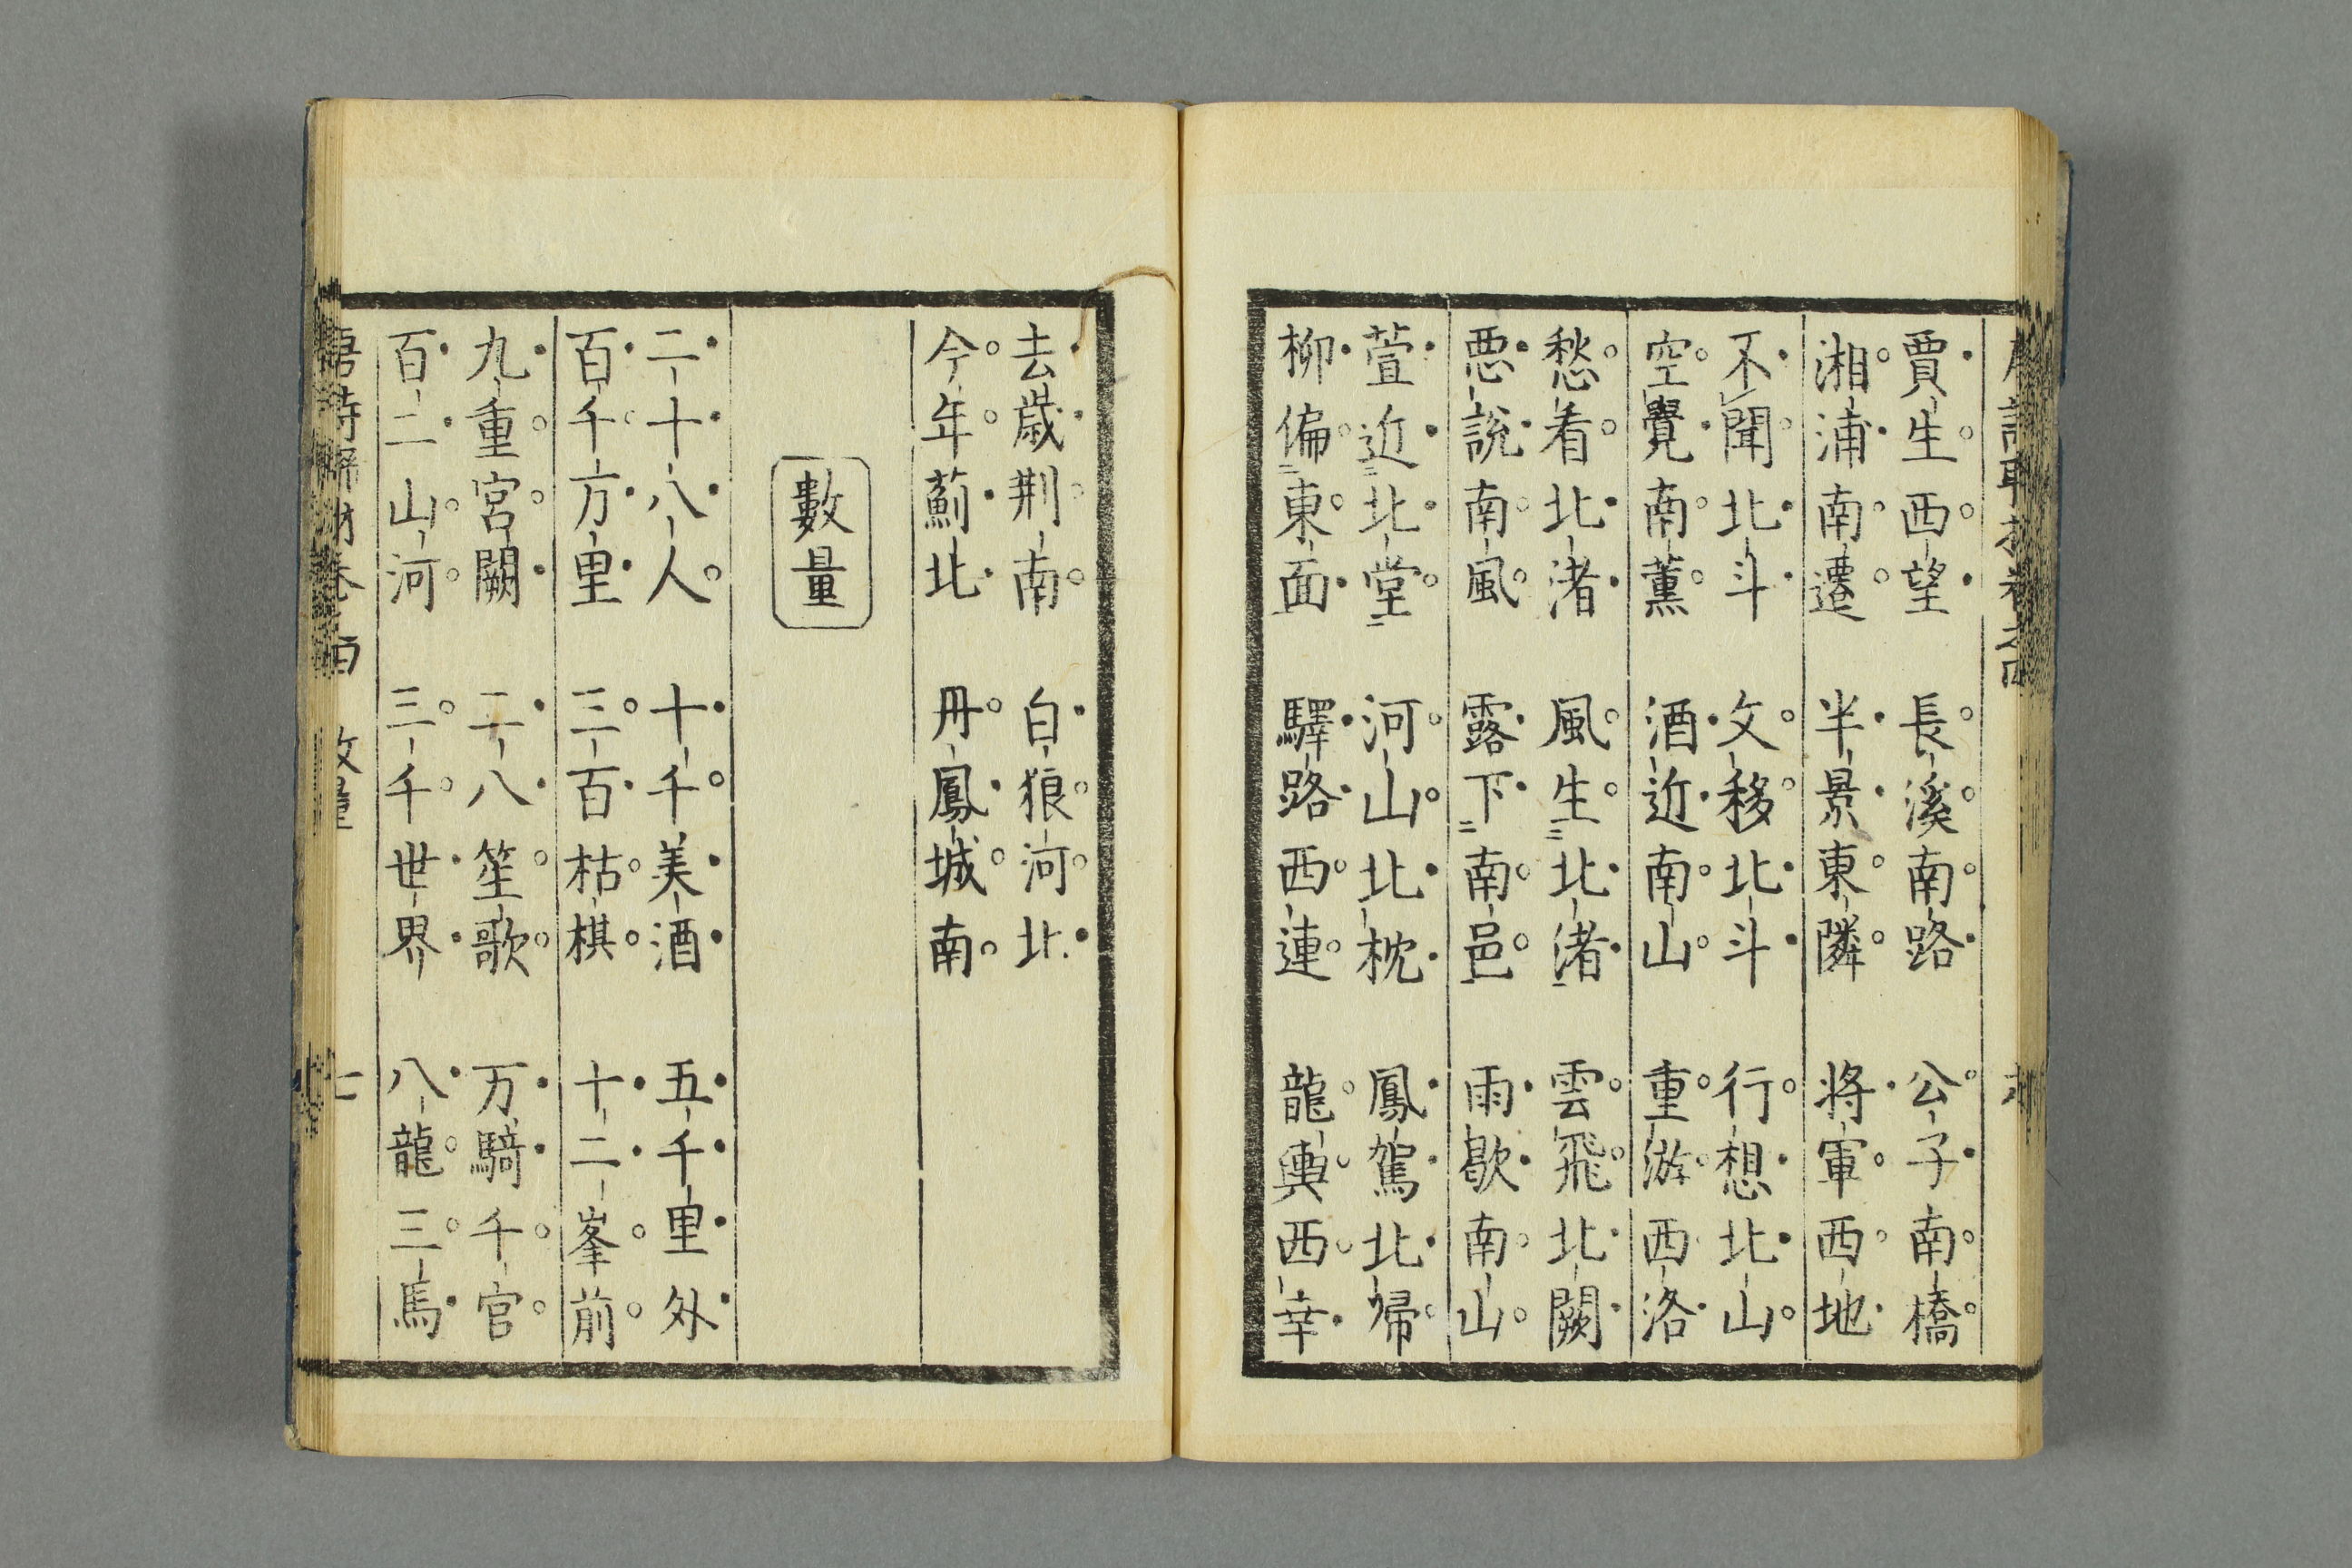 賈生西望 長溪南路 公子南橋
湘浦南遷 半景東隣 將軍西地
不聞北斗 文移北斗 行想北山
空覺南薰 酒近南山 重游西洛
愁看北渚 風生北渚 雲飛北闕
惡說南風 露下南邑 雨歇南山
萱近北堂 河山北枕 鳳駕北歸
柳偏東面 驛路西連 龍輿西幸
去歲荆南 白狼河北
今年薊北 丹鳳城南
數量
二十八人 十千美酒 五千里外
百千方里 三百枯棋 十二峯前
九重宮闕 二八笙歌 万騎千官
百二山河 三千世界 八龍三馬